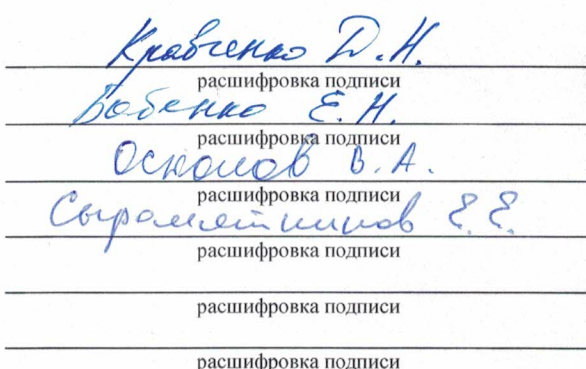 Кравченко Д.Н.
расшифровка подписи
Бабенко Е.Н.
расшифровка подписи
Осколов В.А.
расшифровка подписи
Сыромятников Е.Е.
расшифровка подписи
расшифровка подписи
расшифровка подписи